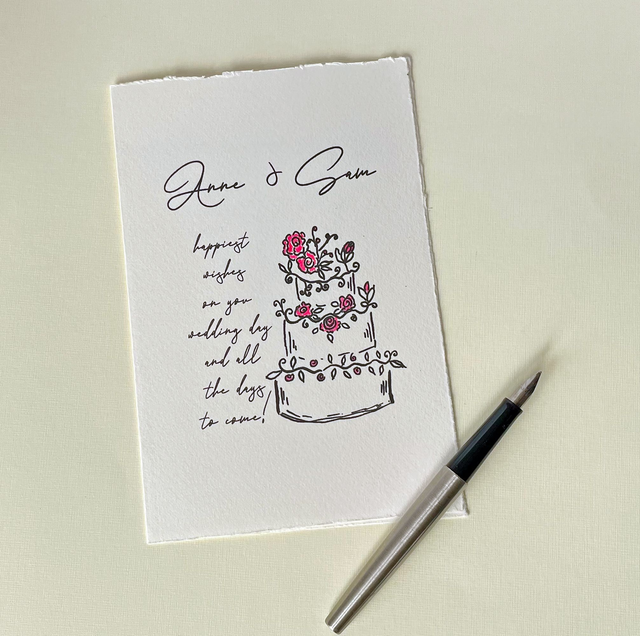 Anne & Sam
happiest
wishes
on you
wedding day
and all
the days
to come!